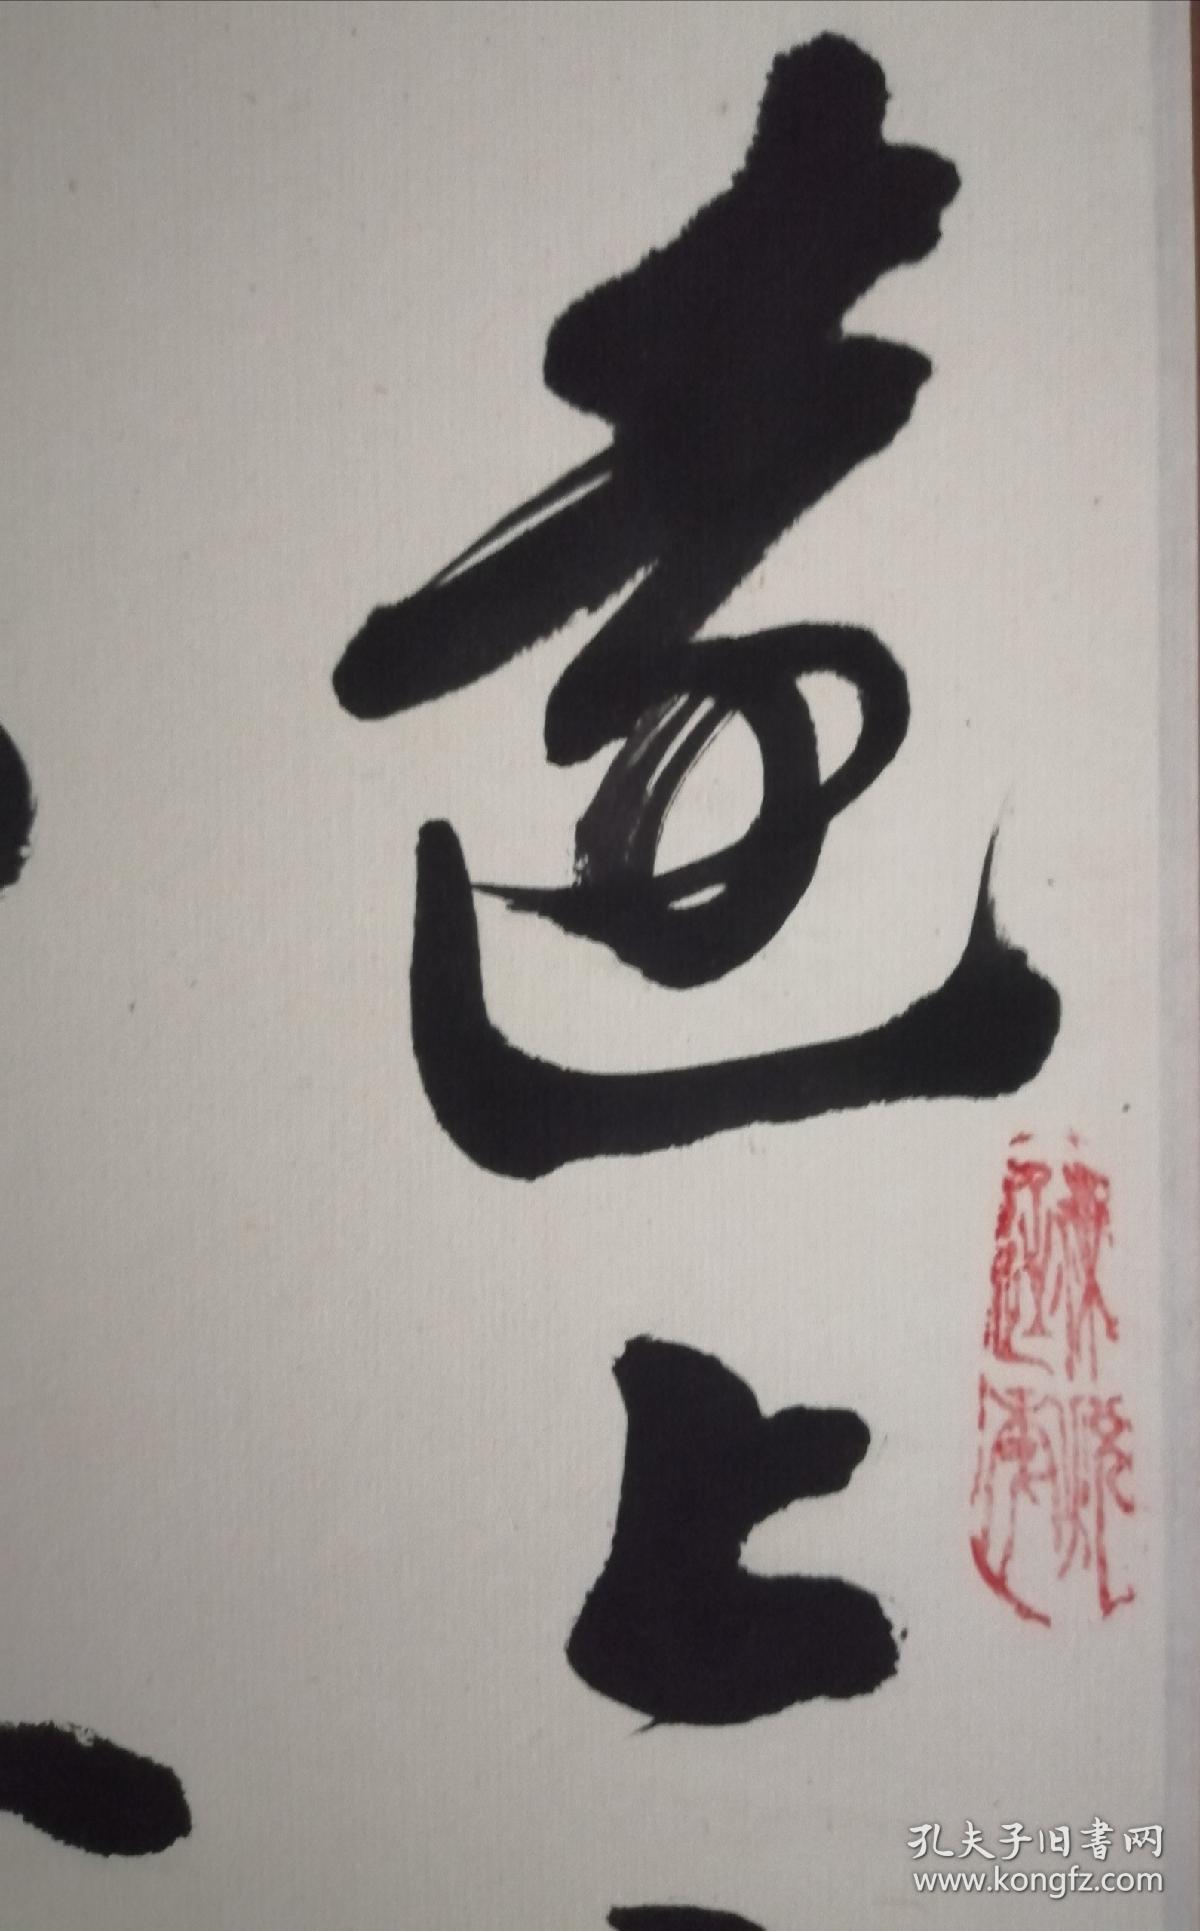 遠上
孔夫子旧書网
www.kongfz.com